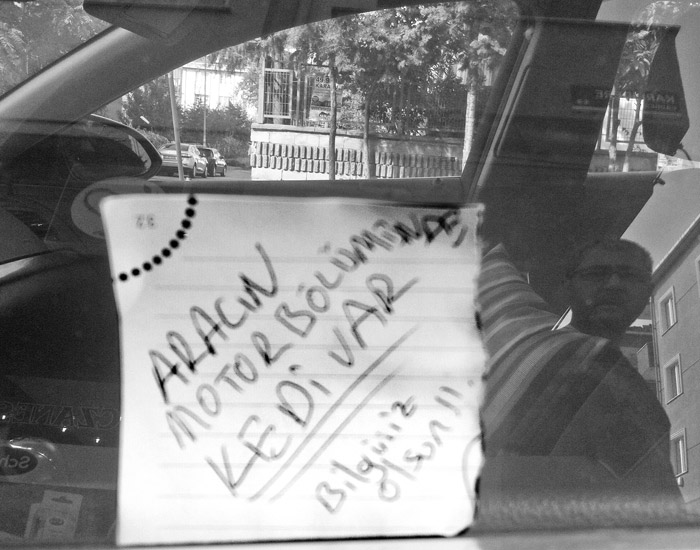 33
ARACIN
MOTOR BÖLÜMİNDE
KEDİ VAR
Bilginiz
olsun!!